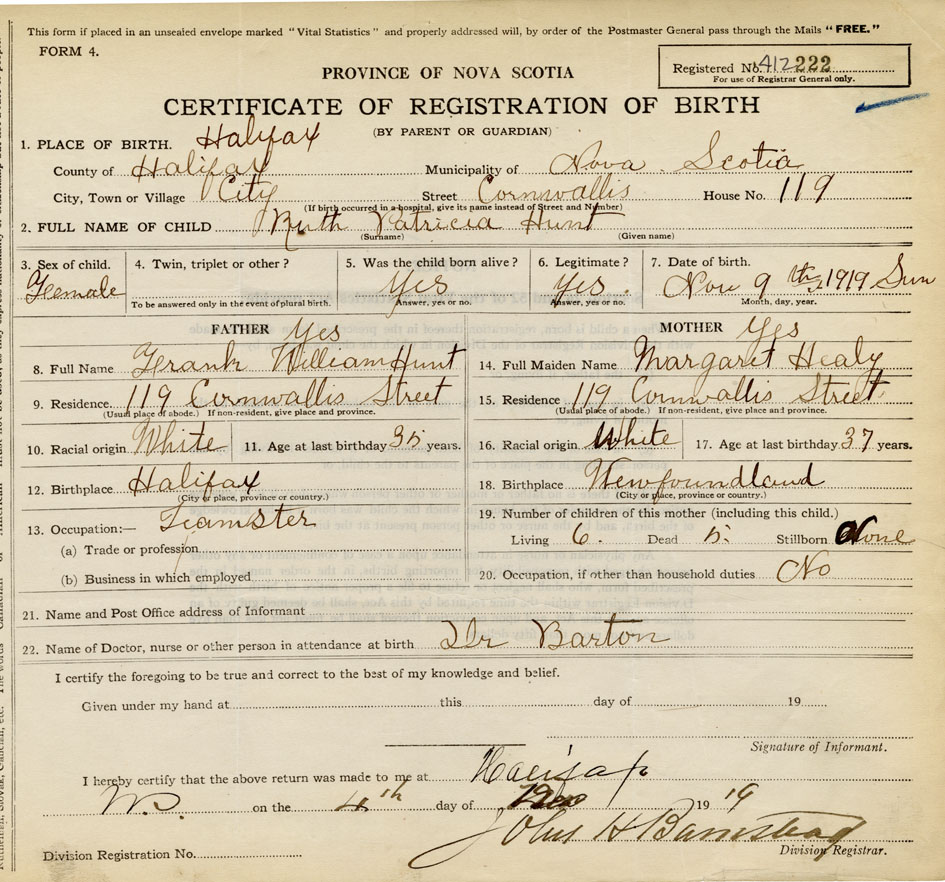 This form if placed in an unsealed envelope marked "Vital Statistics" and properly addressed will, by order of the Postmaster General pass through the Mails "FREE."
FORM 4.
Registered No. 412222
For use of Registrar General only.
PROVINCE OF NOVA SCOTIA
CERTIFICATE OF REGISTRATION OF BIRTH
(BY PARENT OR GUARDIAN)
1. PLACE OF BIRTH. Halifax
County of Halifax Municipality of Nova Scotia
City, Town or Village City Street Cornwallis House No. 119
(If birth occurred in a hospital, give its name instead of Street and Number)
2. FULL NAME OF CHILD Ruth Patricia Hunt
(Surname) (Given name)
3. Sex of child. 4. Twin, triplet or other? 5. Was the child born alive? 6. Legitimate? 7. Date of birth.
Female Yes Yes. Nov 9th 1919 Sun
To be answered only in the event of plural birth. Answer, yes or no. Answer, yes or no. Month, day, year.
FATHER Yes
8. Full Name Frank William Hunt
9. Residence. 119 Cornwallis Street
(Usual place of abode.) If non-resident, give place and province.
10. Racial origin White 11. Age at last birthday 35 years.
12. Birthplace Halifax
(City or place, province or country.)
13. Occupation:— Teamster
(a) Trade or profession
(b) Business in which employed
MOTHER Yes
14. Full Maiden Name Margaret Healy
15. Residence 119 Cornwallis Street
(Usual place of abode.) If non-resident, give place and province.
16. Racial origin White 17. Age at last birthday 37 years.
18. Birthplace Newfoundland
(City or place, province or country.)
19. Number of children of this mother (including this child.)
Living 6. Dead 5. Stillborn None
20. Occupation, if other than household duties No
21. Name and Post Office address of Informant
22. Name of Doctor, nurse or other person in attendance at birth Dr Barton
I certify the foregoing to be true and correct to the best of my knowledge and belief.
Given under my hand at this day of 19
Signature of Informant.
I hereby certify that the above return was made to me at Halifax
on the 4th day of 1919
John H Barnstead
Division Registrar.
Division Registration No.